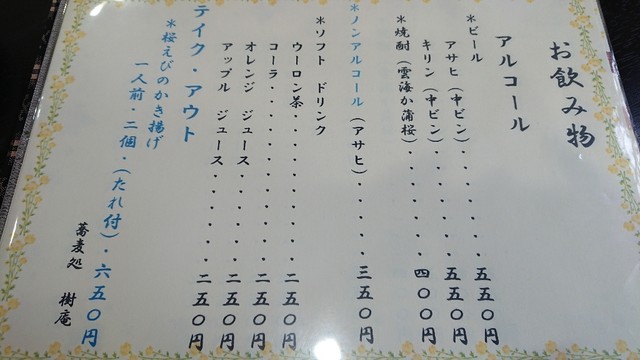 お飲み物
アルコール
＊ビール
アサヒ（中ビン）・・・・・・・五五〇円
キリン（中ビン）・・・・・・・五五〇円
＊焼酎（雲海か蒲桜）・・・・・四〇〇円
＊ノンアルコール（アサヒ）・・・・三五〇円
＊ソフト ドリンク
ウーロン茶・・・・・・・・・・二五〇円
コーラ・・・・・・・・・・・・二五〇円
オレンジ ジュース・・・・・・二五〇円
アップル ジュース・・・・・・二五〇円
テイク・アウト
＊桜えびのかき揚げ
一人前・二個・（たれ付）・六五〇円
蕎麦処 樹庵